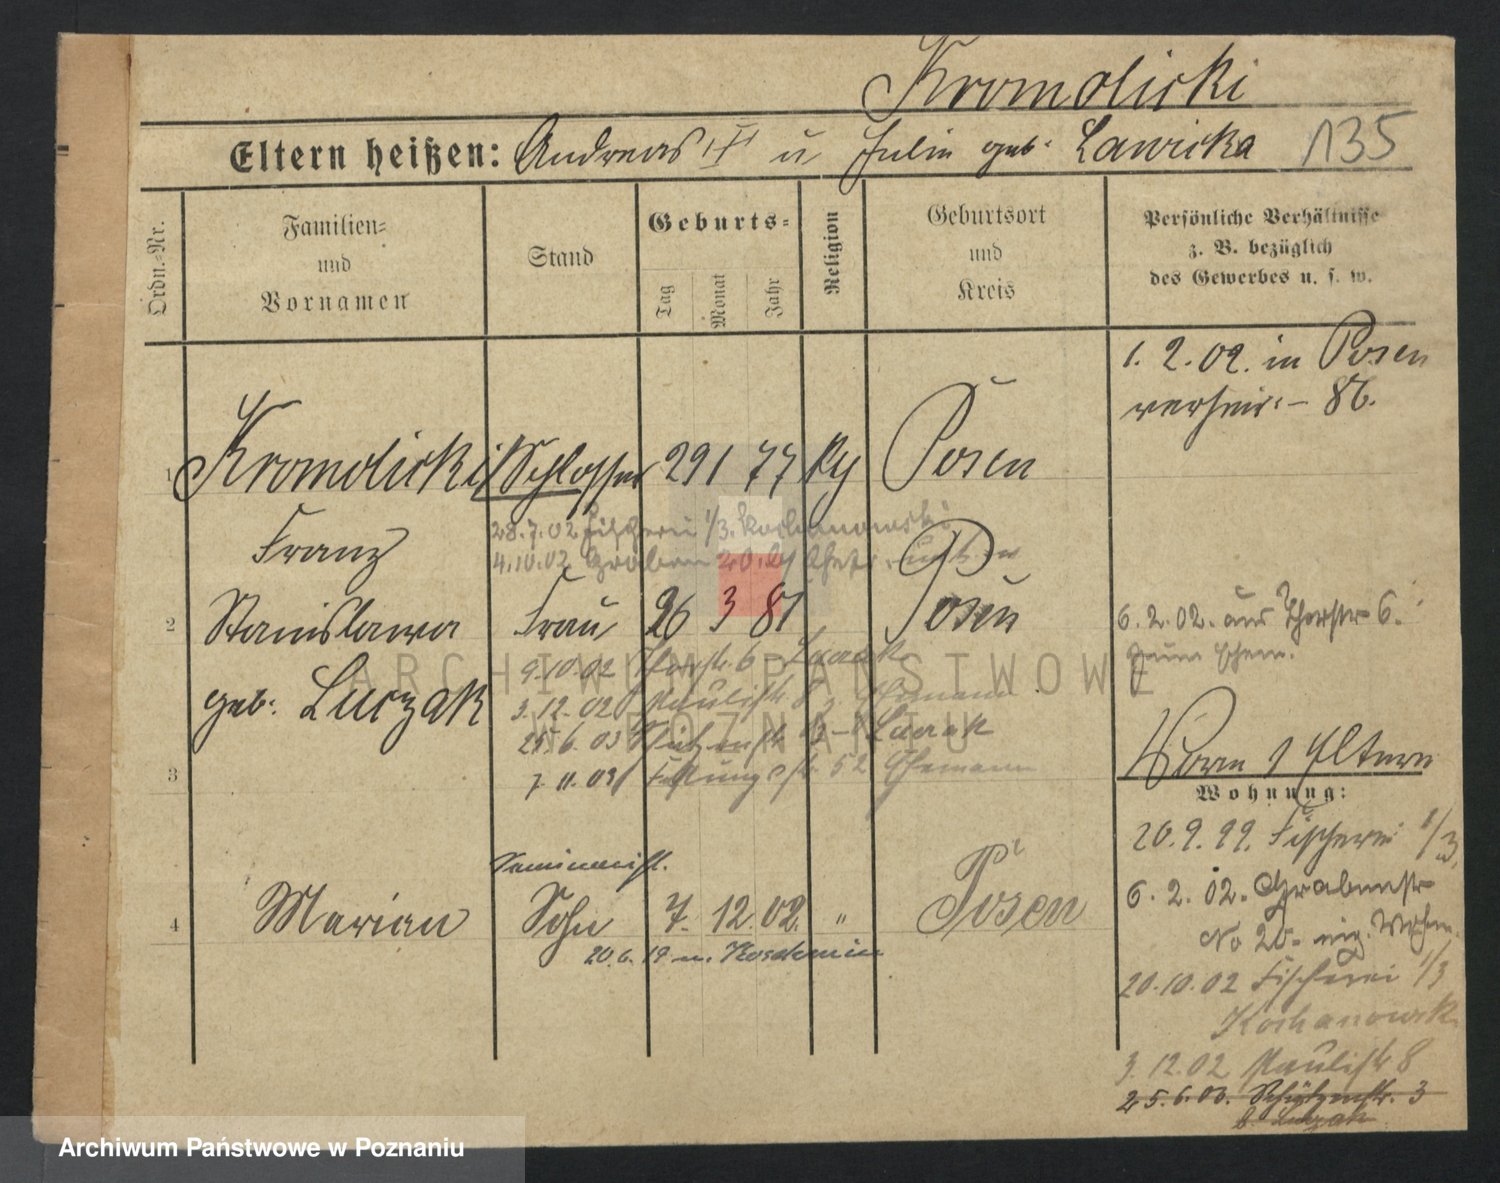 Kromolicki
Eltern heißen: Andreas u Julie geb. Lawicka 135
Ordn.-Nr.
Familien- und Vornamen
Stand
Geburts-
Tag
Monat
Jahr
Religion
Geburtsort und Kreis
Persönliche Verhältnisse
z. B. bezüglich
des Gewerbes u. s. w.
1. 2. 02. in Posen
verheir. - 86.
1 Kromolicki Schlosser 29 1 77 Posen
28.7.02 Fischerei 1/3. Kochanowski
Franz
4.10.02 Graben 20
2 Stanislawa Frau 26 3 81 Posen
6. 2. 02. aus Thorstr 6.
9.10.02 Thorstr. 6
geb. Luczak
3.12.02 Paulistr 8
25.6.03 Schützenstr
7.11.03 52 Ehemann
3
Eltern
Wohnung:
20.9.99. Fischerei 1/3.
Seminarist.
6. 2. 02. Grabenstr
4 Marian Sohn 7. 12. 02. " Posen
No 20. eig. Wohn.
20.6.19 n. Koschmin
20.10.02 Fischerei 1/3
Kochanowsk
3.12.02 Paulistr 8
25.6.03. Schützenstr. 3
b. Luczak
ARCHIWUM PAŃSTWOWE
W POZNANIU
Archiwum Państwowe w Poznaniu